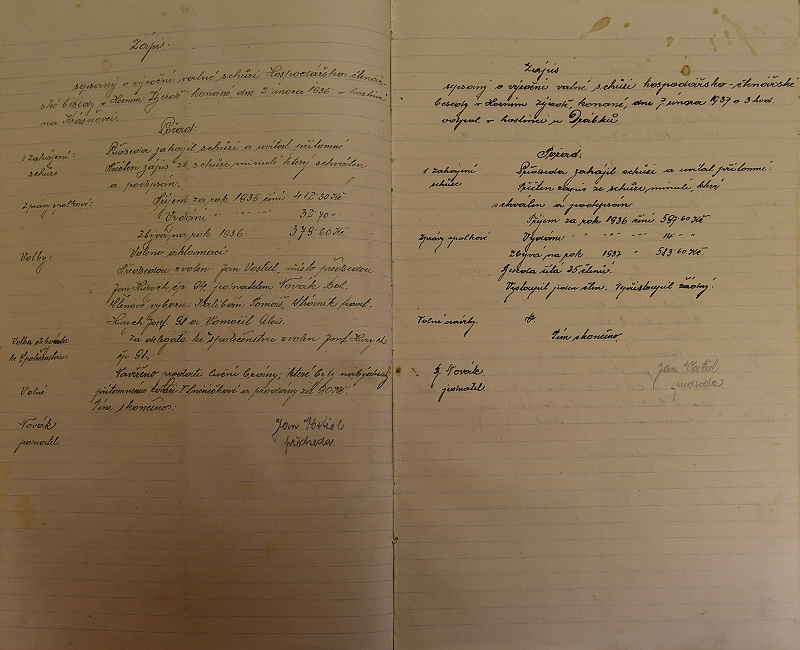 Zápis.
sepsaný o výroční valné schůzi Hospodářsko-čtenář-
ské besedy v Horním Újezdě konané dne 2 února 1936 v hostinci
na Krásňovsi.
Pořad:
1 Zahájení: Předseda zahájil schůzi a uvítal přítomné
schůze Přečten zápis ze schůze minulé který schválen
a podepsán.
Zprávy spolkové: Příjem za rok 1935 činí 412·30 Kč
Vydání " " " 32·70 "
Zbývá na rok 1936 379·60 Kč.
Volby: Voleno aklamací:
Předsedou zvolen: Jan Vostřel, místo předsedou
Jan čp 94. jednatelem Novák Bol.
Členové výboru: Tomáš,
Josef 91 a Vomočil Alois.
Volba delegáta Za delegáta ke Společenstvu zvolen Josef
ke Společenstvu: čp 91.
Navrženo prodati luční brány; které byly
Volné přítomnému kováři a prodány za 90 Kč.
Tím skončeno:
Novák
jednatel:
Jan Vostřel
předseda
Zápis
sepsaný o výroční valné schůzi hospodářsko-čtenářské
besedy v Horním Újezdě, konané, dne 7 února 1937 o 3 hod.
odpol v hostinci u Drábků.
Pořad:
1 Zahájení Předseda zahájil schůzi a uvítal přítomné.
schůze Přečten zápis ze schůze minulé, který
schválen a podepsán
Příjem za rok 1936 činí 597·60 Kč
Zprávy spolkové Vydání " " " 14 " "
Zbývá na rok 1937 " 583·60 Kč.
Beseda čítá 25 členů.
Vystoupil jeden člen. Přistoupil žádný.
Volné návrhy.
Tím skončeno.
J. Novák
jednatel
Jan Vostřel
předseda